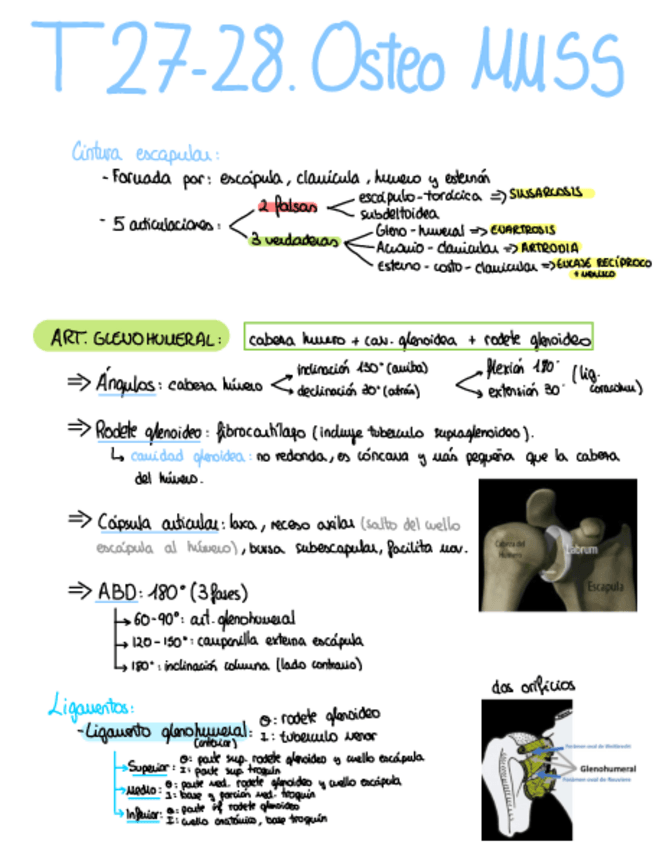 T27-28. Osteo MMSS
Cintura escapular:
- Formada por: escápula, clavícula, húmero y esternón
- 5 articulaciones:
2 falsas
escápulo-torácica => SINSARCOSIS
subdeltoidea
3 verdaderas
Gleno-humeral => ENARTROSIS
Acromio-clavicular => ARTRODIA
Esterno-costo-clavicular => ENCAJE RECÍPROCO
+ menisco
ART. GLENOHUMERAL: cabeza humero + cav. glenoidea + rodete glenoideo
=> Ángulos: cabeza húmero
inclinación 130° (arriba)
declinación 30° (atrás)
flexión 180°
extensión 30°
(lig. coracohum.)
=> Rodete glenoideo: fibrocartílago (incluye tuberculo supraglenoideo).
cavidad glenoidea: no redonda, es cóncava y más pequeña que la cabeza
del húmero.
=> Cápsula articular: laxa, receso axilar (salto del cuello
escápula al húmero), bursa subescapular, facilita mov.
Cabeza del
Húmero
Labrum
Escapula
=> ABD: 180° (3 fases)
60-90°: art. glenohumeral
120-150°: campanilla externa escápula
180°: inclinación columna (lado contrario)
Ligamentos:
- Ligamento glenohumeral:
(anterior)
O: rodete glenoideo
I: tuberculo menor
Superior: O: parte sup. rodete glenoideo y cuello escápula
I: parte sup. troquín
Medio: O: parte med. rodete glenoideo y cuello escápula
I: base y porción med. troquín
Inferior: O: parte if rodete glenoideo
I: cuello anatómico, base troquín
dos orificios
Foramen oval de Weitbrecht
Glenohumeral
Foramen oval de Rouviere